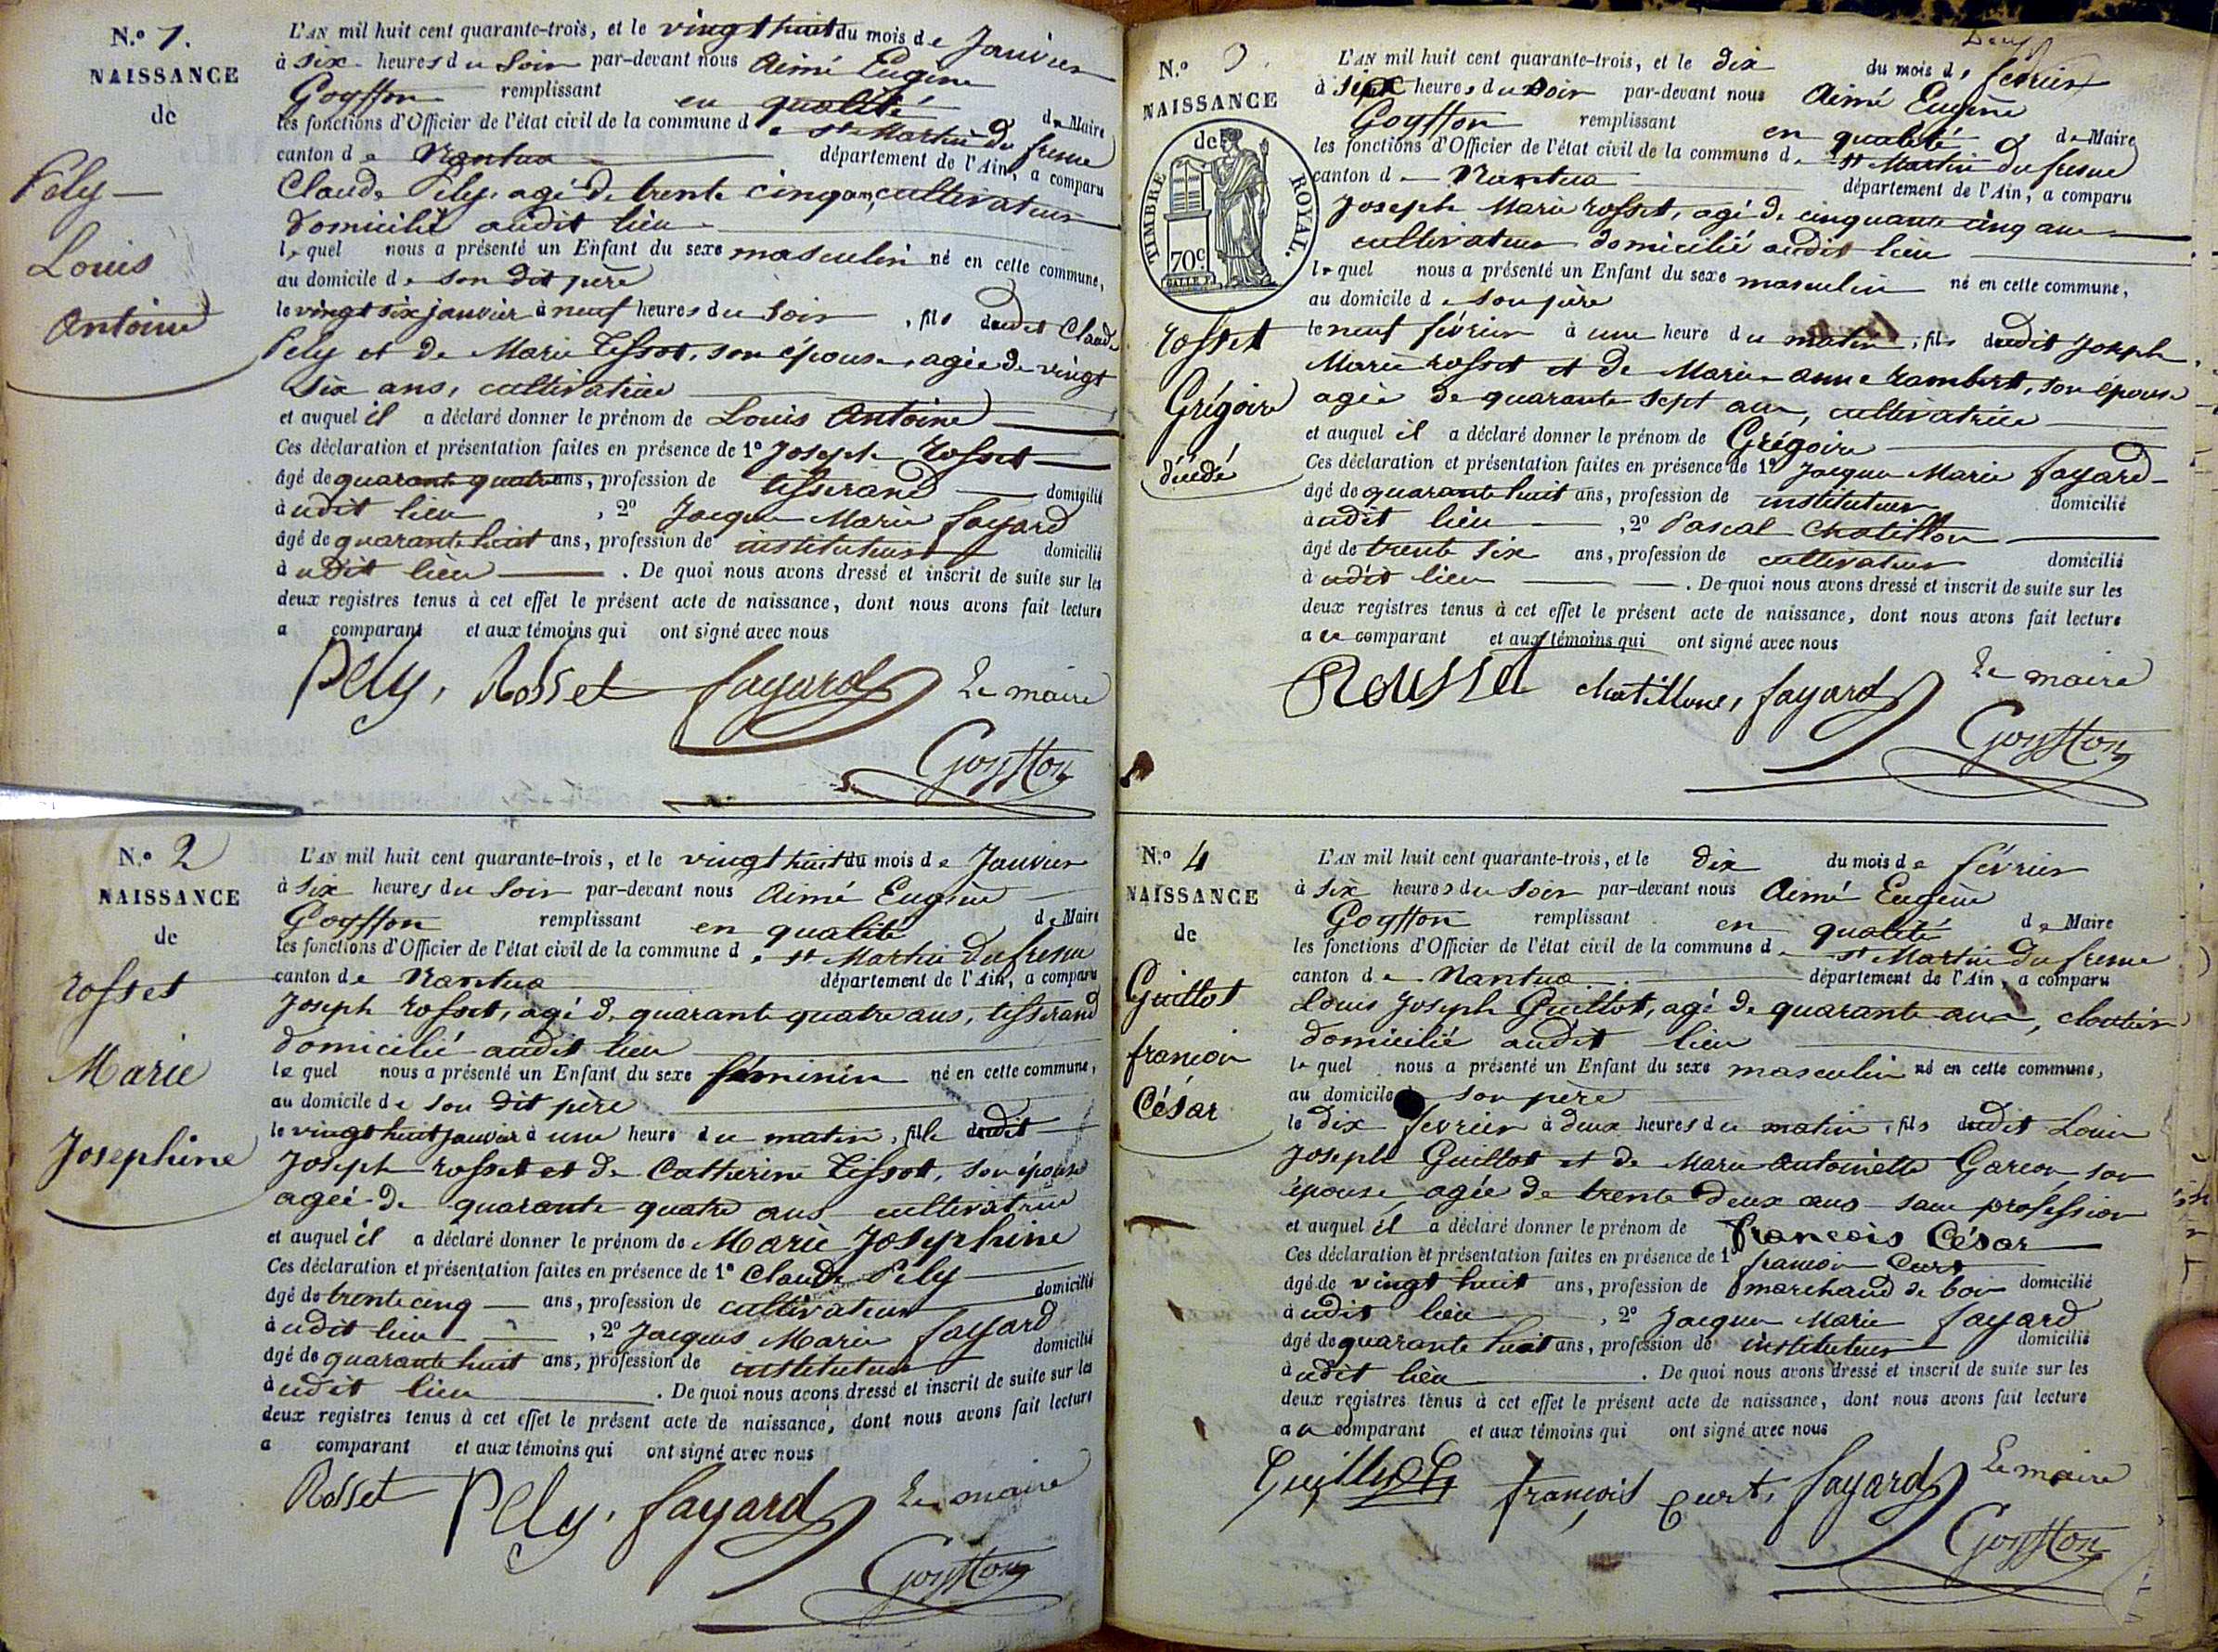 N.o 1.
NAISSANCE
de
Pély
Louis
Antoine
L'AN mil huit cent quarante-trois, et le vingt huit du mois de Janvier
à six heures du soir par-devant nous Aimé Eugène
Goyffon remplissant en qualité de Maire
les fonctions d'Officier de l'état civil de la commune de St Martin du fresne
canton de Nantua département de l'Ain, a comparu
Claude Pély, agé de trente cinq ans, cultivateur
domicilié audit lieu
lequel nous a présenté un Enfant du sexe masculin né en cette commune,
au domicile de son dit père
le vingt six janvier à neuf heures du soir, fils dudit Claude
Pely et de Marie Tissot, son épouse, agée de vingt
six ans, cultivatrice
et auquel il a déclaré donner le prénom de Louis Antoine
Ces déclaration et présentation faites en présence de 1o Joseph Rosset
âgé de quarante quatre ans, profession de tisserand domicilié
audit lieu, 2o Jacques Marie fayard
âgé de quarante huit ans, profession de instituteur domicilié
audit lieu. De quoi nous avons dressé et inscrit de suite sur les
deux registres tenus à cet effet le présent acte de naissance, dont nous avons fait lecture
a comparant et aux témoins qui ont signé avec nous
Pely, Rosset fayard Le maire
Goyffon
N.o 2
NAISSANCE
de
rosset
Marie
Josephine
L'AN mil huit cent quarante-trois, et le vingt huit du mois de Janvier
à six heures du soir par-devant nous Aimé Eugène
Goyffon remplissant en qualité de Maire
les fonctions d'Officier de l'état civil de la commune de St Martin du fresne
canton de Nantua département de l'Ain, a comparu
Joseph rosset, agé de quarante quatre ans, tisserand
domicilié audit lieu
lequel nous a présenté un Enfant du sexe féminin né en cette commune,
au domicile de son dit père
le vingt huit janvier à une heure du matin, fille dudit
Joseph rosset et de Catherine Tissot, son épouse
agée de quarante quatre ans cultivatrice
et auquel il a déclaré donner le prénom de Marie Josephine
Ces déclaration et présentation faites en présence de 1o Claude Pely
âgé de trente cinq ans, profession de cultivateur domicilié
audit lieu, 2o Jacques Marie fayard
âgé de quarante huit ans, profession de instituteur domicilié
audit lieu. De quoi nous avons dressé et inscrit de suite sur les
deux registres tenus à cet effet le présent acte de naissance, dont nous avons fait lecture
a comparant et aux témoins qui ont signé avec nous
Rosset Pely, fayard Le maire
Goyffon
N.o 3.
NAISSANCE
de
TIMBRE ROYAL.
70c
rosset
Grégoire
décédé
L'AN mil huit cent quarante-trois, et le dix du mois de février
à six heures du soir par-devant nous Aimé Eugène
Goyffon remplissant en qualité de Maire
les fonctions d'Officier de l'état civil de la commune de St Martin du fresne
canton de Nantua département de l'Ain, a comparu
Joseph Marie rosset, agé de cinquante cinq ans
cultivateur domicilié audit lieu
lequel nous a présenté un Enfant du sexe masculin né en cette commune,
au domicile de son père
le neuf février à une heure du matin, fils dudit Joseph
Marie rosset et de Marie anne rambert, son épouse
agée de quarante sept ans, cultivatrice
et auquel il a déclaré donner le prénom de Grégoire
Ces déclaration et présentation faites en présence de 1o Jacques Marie fayard
âgé de quarante huit ans, profession de instituteur domicilié
audit lieu, 2o Pascal Chatillon
âgé de trente six ans, profession de cultivateur domicilié
audit lieu. De quoi nous avons dressé et inscrit de suite sur les
deux registres tenus à cet effet le présent acte de naissance, dont nous avons fait lecture
au comparant et aux témoins qui ont signé avec nous
chatillone, fayard Le maire
Goyffon
N.o 4
NAISSANCE
de
Guillot
françois
César
L'AN mil huit cent quarante-trois, et le dix du mois de février
à six heures du soir par-devant nous Aimé Eugène
Goyffon remplissant en qualité de Maire
les fonctions d'Officier de l'état civil de la commune de St Martin du fresne
canton de Nantua département de l'Ain, a comparu
Louis Joseph Guillot, agé de quarante ans, cloutier
domicilié audit lieu
lequel nous a présenté un Enfant du sexe masculin né en cette commune,
au domicile son père
le dix février à deux heures du matin, fils dudit Louis
Joseph Guillot et de Marie Antoinette Garcon, son
épouse, agée de trente deux ans sans profession
et auquel il a déclaré donner le prénom de françois César
Ces déclaration et présentation faites en présence de 1o françois Curt
âgé de vingt huit ans, profession de marchand de bois domicilié
audit lieu, 2o Jacques Marie fayard
âgé de quarante huit ans, profession de instituteur domicilié
audit lieu. De quoi nous avons dressé et inscrit de suite sur les
deux registres tenus à cet effet le présent acte de naissance, dont nous avons fait lecture
au comparant et aux témoins qui ont signé avec nous
Guillot françois curt, fayard Le maire
Goyffon